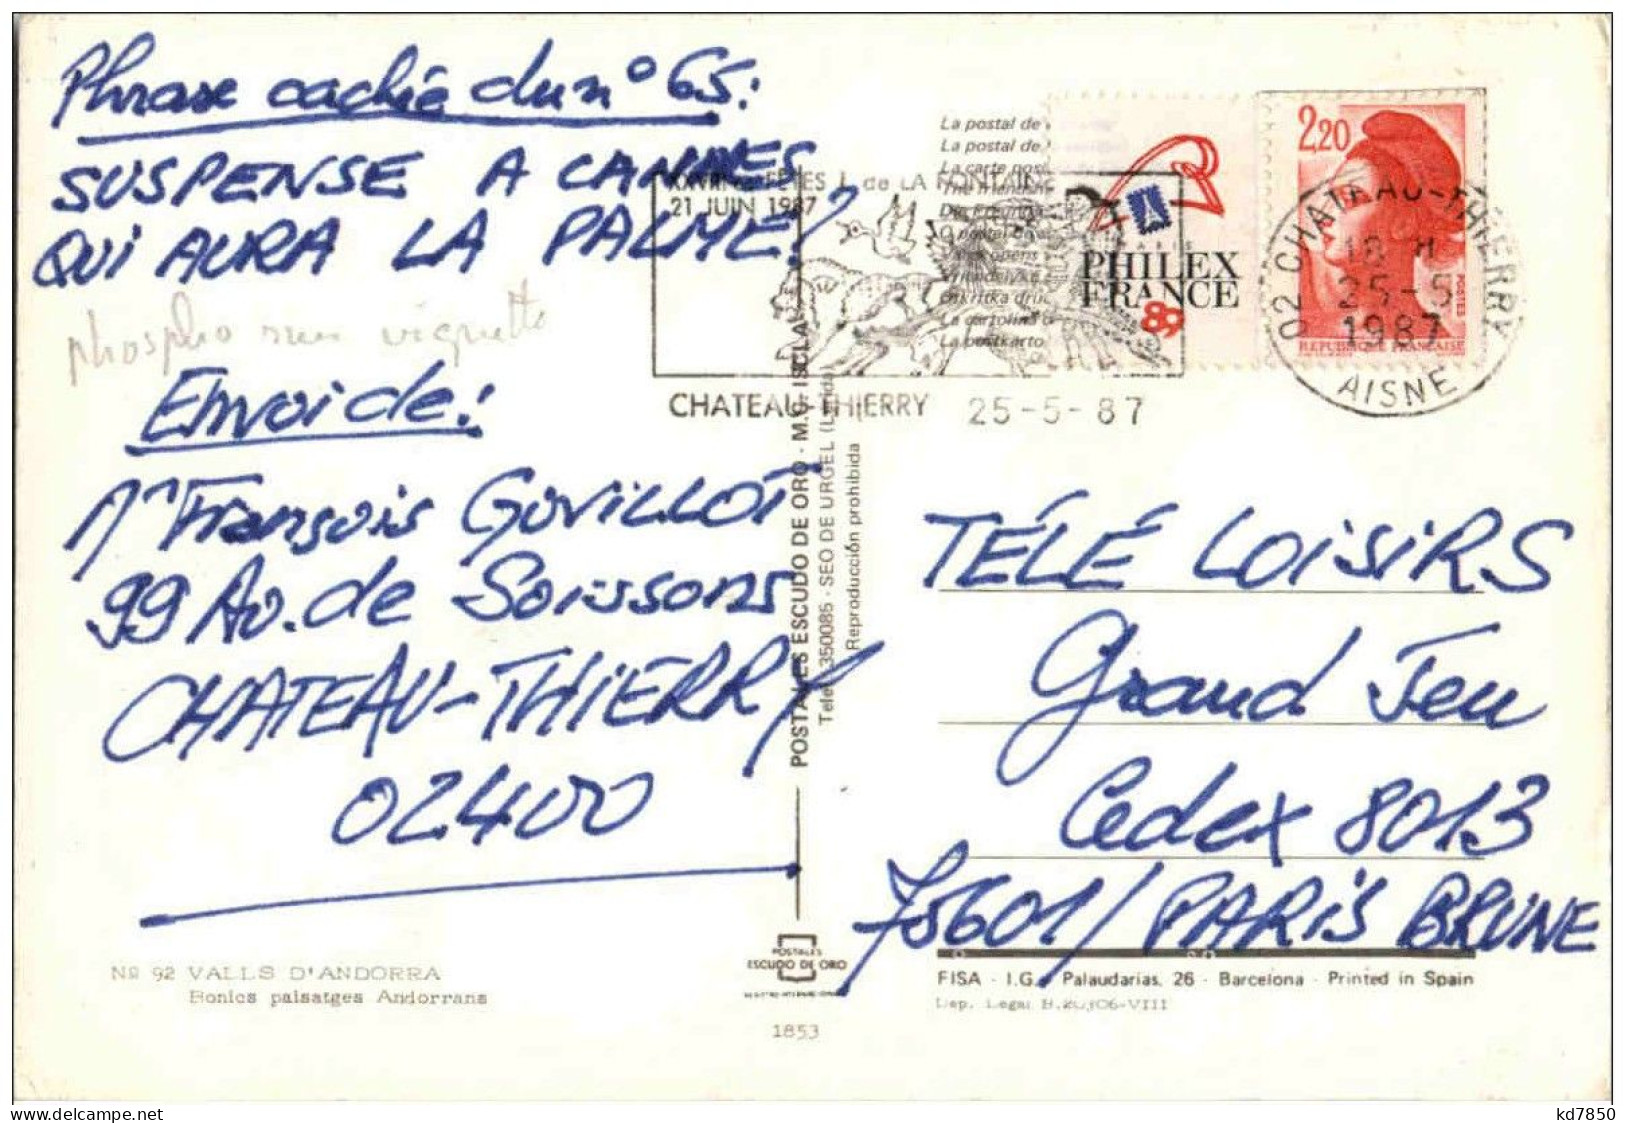 Phrase cachée du n° 65:
SUSPENSE A CANNES
QUI AURA LA PALME?
phospho sur vignette
Envoi de:
Mr François GOVILLOT
99 Av. de Soissons
CHATEAU-THIERRY
02400
Nº 92 VALLS D'ANDORRA
Bonics paisatges Andorrans
La postal de
La postal de
La carte pos
O postal
La cartolina
La postkarto
FÊTES J. de LA FONTAINE
21 JUIN 1987
CHATEAU-THIERRY 25-5-87
PARIS
PHILEX
FRANCE
89
2,20
POSTES
REPUBLIQUE FRANÇAISE
02 CHATEAU-THIERRY
18 H
25-5
1987
AISNE
POSTALES ESCUDO DE ORO - M.C. ISCLA
Telef. 350085 - SEO DE URGEL (Lérida)
Reproducción prohibida
TÉLÉ LOISIRS
Grand Jeu
Cedex 8013
75601 / PARIS BRUNE
POSTALES
ESCUDO DE ORO
1853
FISA - I.G. Palaudarias, 26 - Barcelona - Printed in Spain
Dep. Legal B. -VIII
www.delcampe.net
kd7850